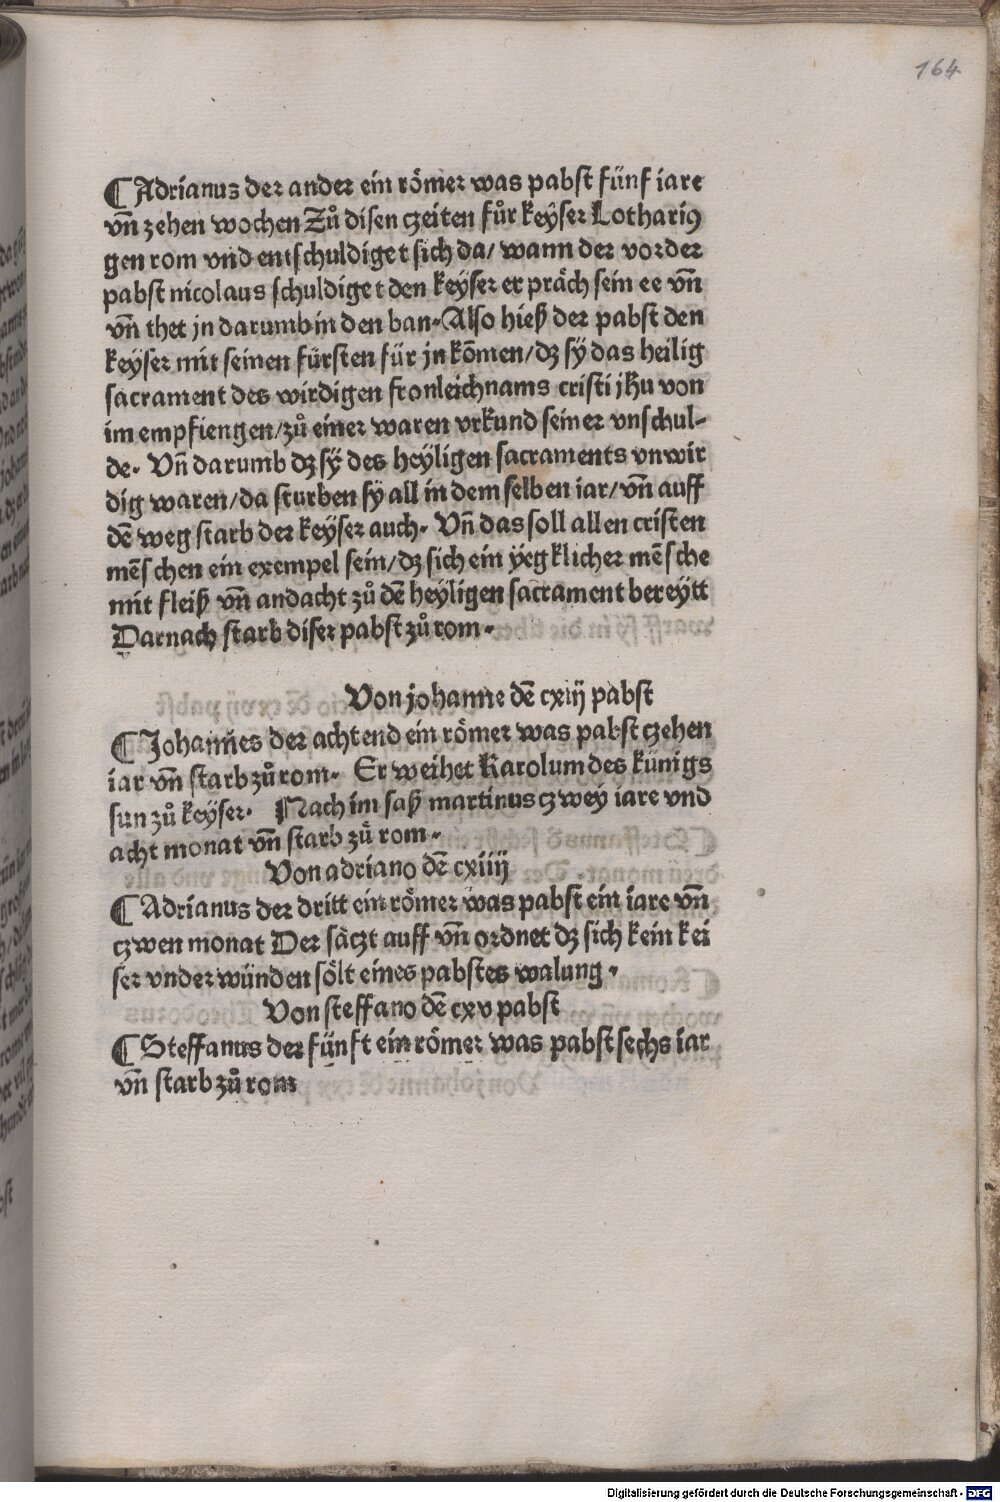 164
⸿Adrianus der ander ein römer was pabst fünf iare
vn̄ zehen wochen Zů disen czeiten fůr keÿser Lothariꝰ
gen rom vnd entschuldiget sich da/ wann der vorder
pabst nicolaus schuldiget den keÿser er präch sein ee vn̄
vn̄ thet jn darumb in den ban. Also hieß der pabst den
keÿser mit seinen fürsten für jn kōmen/dz sÿ das heilig
sacrament des wirdigen fronleichnams cristi jhu von
im empfiengen/zů einer waren vrkund seiner vnschul-
de. Vn̄ darumb dz sÿ des heÿligen sacraments vnwir
dig waren/da sturben sy all in dem selben iar/vn̄ auff
dē weg starb der keÿser auch. Vn̄ das soll allen cristen
mēschen ein exempel sein/dz sich ein ÿegklicher mēsche
mit fleiß vn̄ andacht zů dē heÿligen sacrament bereÿtt
Darnach starb diser pabst zů rom.
Von johanne dē cxiij pabst
⸿Johann̄es der achtend ein römer was pabst czehen
iar vn̄ starb zů rom. Er weihet Karolum des künigs
sun zů keÿser. ⸿Nach im saß martinus czweÿ iare vnd
acht monat vn̄ starb zů rom.
Von adriano dē cxiiij
⸿Adrianus der dritt ein römer was pabst ein iare vn̄
czwen monat Der säczt auff vn̄ ordnet dz sich kein kei
ser vnder wünden sölt eines pabstes walung.
Von steffano dē cxv pabst
⸿Steffanus der fünft ein römer was pabst sechs iar
vn̄ starb zů rom
Digitalisierung gefördert durch die Deutsche Forschungsgemeinschaft - DFG